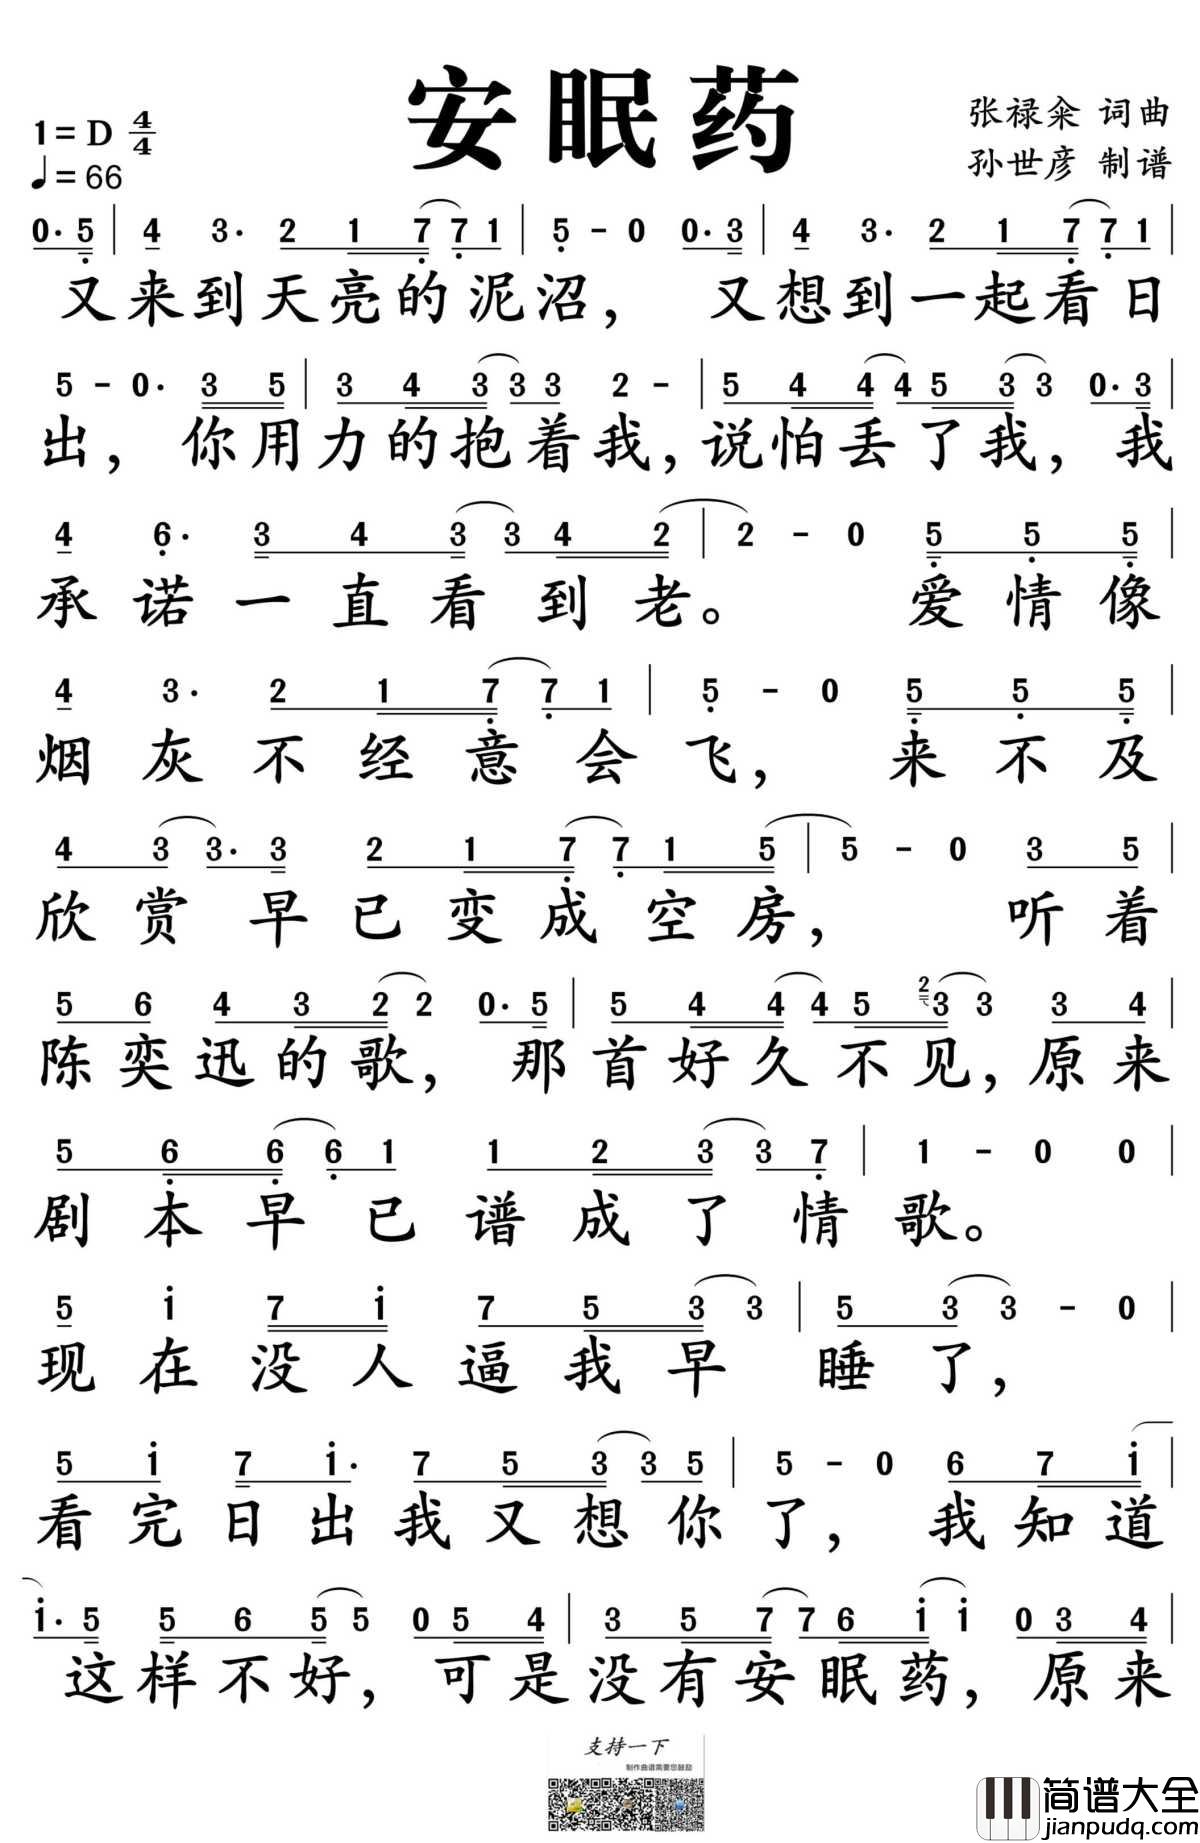 安眠药
1=D 4/4
♩=66
张禄籴 词曲
孙世彦 制谱
0· 5 | 4 3· 2 1 7 7 1 | 5 - 0 0· 3 | 4 3· 2 1 7 7 1 |
又来到天亮的泥沼，又想到一起看日
5 - 0· 3 5 | 3 4 3 3 3 2 - | 5 4 4 4 5 3 3 0· 3 |
出，你用力的抱着我，说怕丢了我，我
4 6· 3 4 3 3 4 2 | 2 - 0 5 5 5 |
承诺一直看到老。爱情像
4 3· 2 1 7 7 1 | 5 - 0 5 5 5 |
烟灰不经意会飞，来不及
4 3 3· 3 2 1 7 7 1 5 | 5 - 0 3 5 |
欣赏早已变成空房，听着
5 6 4 3 2 2 0· 5 | 5 4 4 4 5 2 3 3 3 4 |
陈奕迅的歌，那首好久不见，原来
5 6 6 6 1 1 2 3 3 7 | 1 - 0 0 |
剧本早已谱成了情歌。
5 i 7 i 7 5 3 3 | 5 3 3 - 0 |
现在没人逼我早睡了，
5 i 7 i· 7 5 3 3 5 | 5 - 0 6 7 i |
看完日出我又想你了，我知道
i· 5 5 6 5 5 0 5 4 | 3 5 7 7 6 i i 0 3 4 |
这样不好，可是没有安眠药，原来
支持一下
制作曲谱需要您鼓励
简谱大全
jianpudq.com